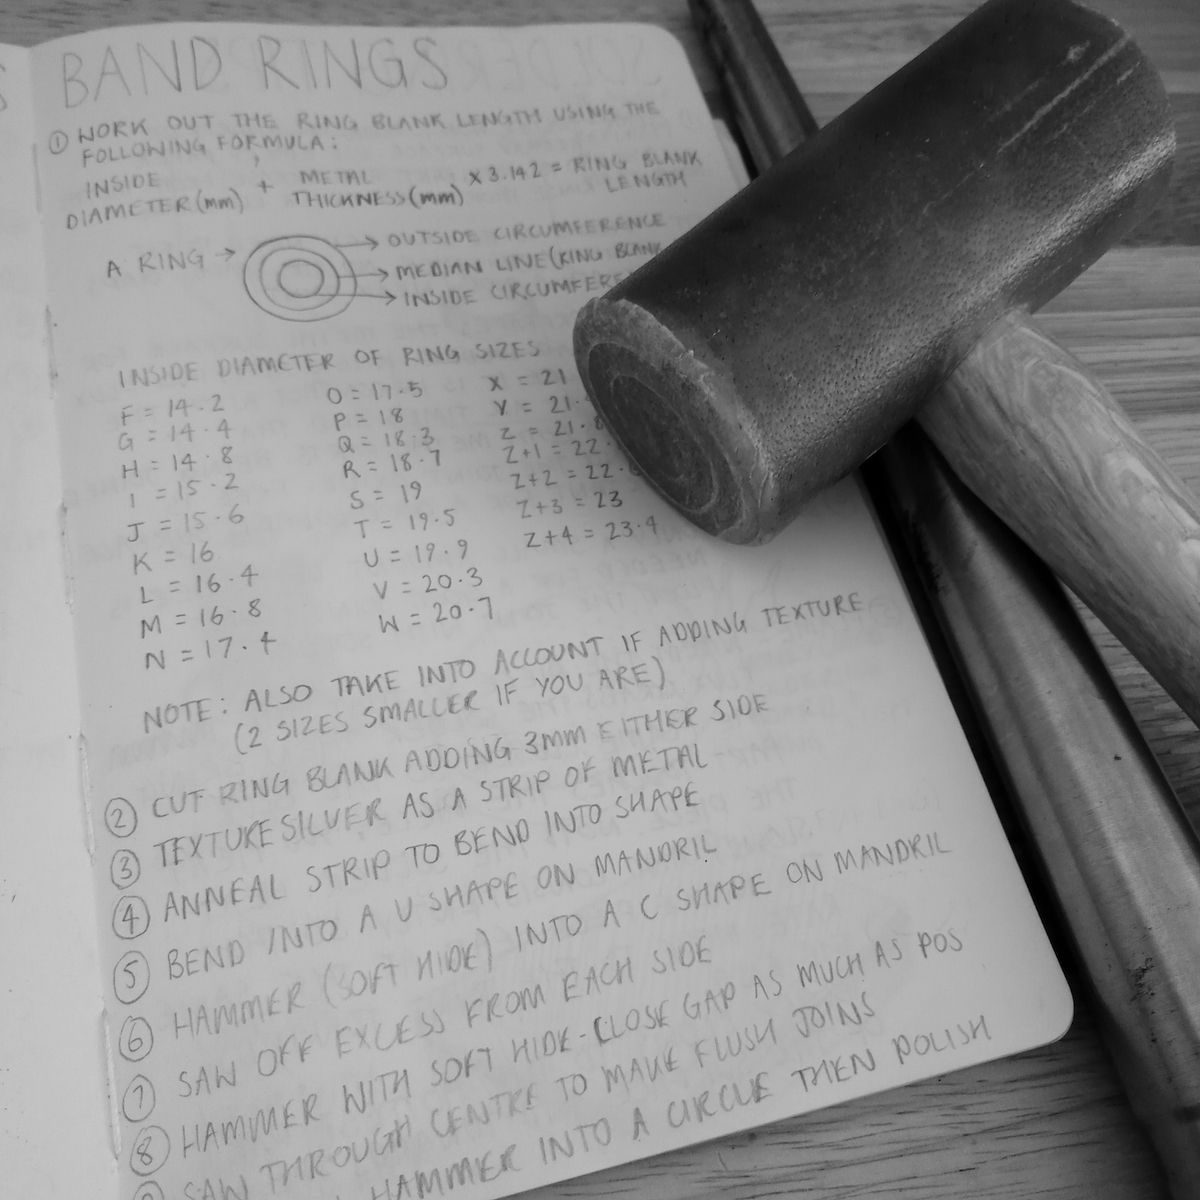 BAND RINGS
① WORK OUT THE RING BLANK LENGTH USING THE
FOLLOWING FORMULA:
INSIDE DIAMETER (mm) + METAL THICKNESS (mm) x 3.142 = RING BLANK LENGTH
A RING → → OUTSIDE CIRCUMFERENCE
→ MEDIAN LINE (RING BLANK
→ INSIDE CIRCUMFERE
INSIDE DIAMETER OF RING SIZES
F = 14.2
G = 14.4
H = 14.8
I = 15.2
J = 15.6
K = 16
L = 16.4
M = 16.8
N = 17.4
O = 17.5
P = 18
Q = 18.3
R = 18.7
S = 19
T = 19.5
U = 19.9
V = 20.3
W = 20.7
X = 21
Y = 21.
Z = 21.8
Z+1 = 22.
Z+2 = 22.
Z+3 = 23
Z+4 = 23.4
NOTE: ALSO TAKE INTO ACCOUNT IF ADDING TEXTURE
(2 SIZES SMALLER IF YOU ARE)
② CUT RING BLANK ADDING 3mm EITHER SIDE
③ TEXTURE SILVER AS A STRIP OF METAL
④ ANNEAL STRIP TO BEND INTO SHAPE
⑤ BEND INTO A U SHAPE ON MANDRIL
⑥ HAMMER (SOFT HIDE) INTO A C SHAPE ON MANDRIL
⑦ SAW OFF EXCESS FROM EACH SIDE
⑧ HAMMER WITH SOFT HIDE - CLOSE GAP AS MUCH AS POS
SAW THROUGH CENTRE TO MAKE FLUSH JOINS
HAMMER INTO A CIRCLE THEN POLISH